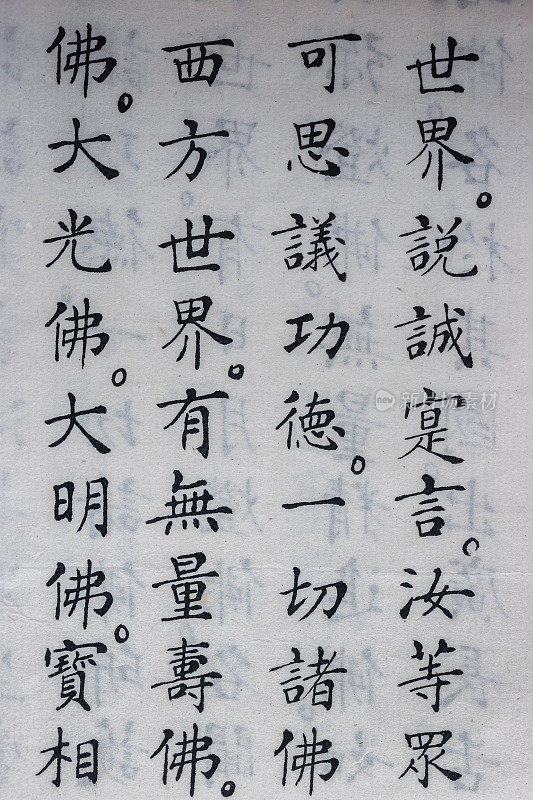 世界。説誠寔言。汝等眾
可思議功德。一切諸佛
西方世界。有無量壽佛。
佛。大光佛。大明佛。寶相
新片场素材